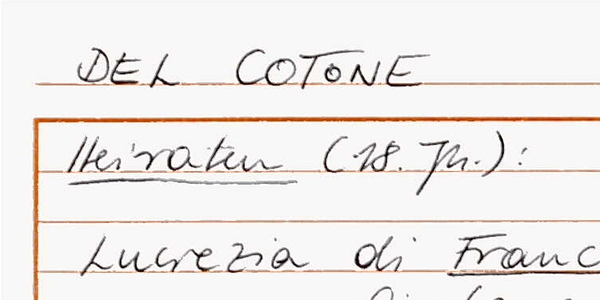 DEL COTONE
Heiraten (18. Jh.):
Lucrezia di Franc